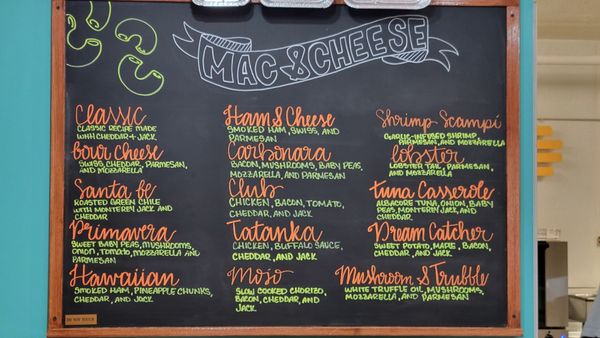 MAC & CHEESE
Classic
CLASSIC RECIPE MADE
WITH CHEDDAR + JACK
Four Cheese
SWISS, CHEDDAR, PARMESAN,
AND MOZZARELLA
Santa fe
ROASTED GREEN CHILE
WITH MONTEREY JACK AND
CHEDDAR
Primavera
SWEET BABY PEAS, MUSHROOMS,
ONION, TOMATO, MOZZARELLA AND
PARMESAN
Hawaiian
SMOKED HAM, PINEAPPLE CHUNKS,
CHEDDAR, AND JACK
Ham & Cheese
SMOKED HAM, SWISS, AND
PARMESAN
Carbonara
BACON, MUSHROOMS, BABY PEAS,
MOZZARELLA, AND PARMESAN
Club
CHICKEN, BACON, TOMATO,
CHEDDAR, AND JACK
Tatanka
CHICKEN, BUFFALO SAUCE,
CHEDDAR, AND JACK
Mojo
SLOW COOKED CHORIZO,
BACON, CHEDDAR, AND
JACK
Shrimp Scampi
GARLIC-INFUSED SHRIMP,
PARMESAN, AND MOZZARELLA
lobster
LOBSTER TAIL, PARMESAN,
AND MOZZARELLA
Tuna Casserole
ALBACORE TUNA, ONION, BABY
PEAS, MONTEREY JACK, AND
CHEDDAR
Dream Catcher
SWEET POTATO, MAPLE, BACON,
CHEDDAR, AND JACK
Mushroom & Truffle
WHITE TRUFFLE OIL, MUSHROOMS,
MOZZARELLA, AND PARMESAN
DO NOT TOUCH